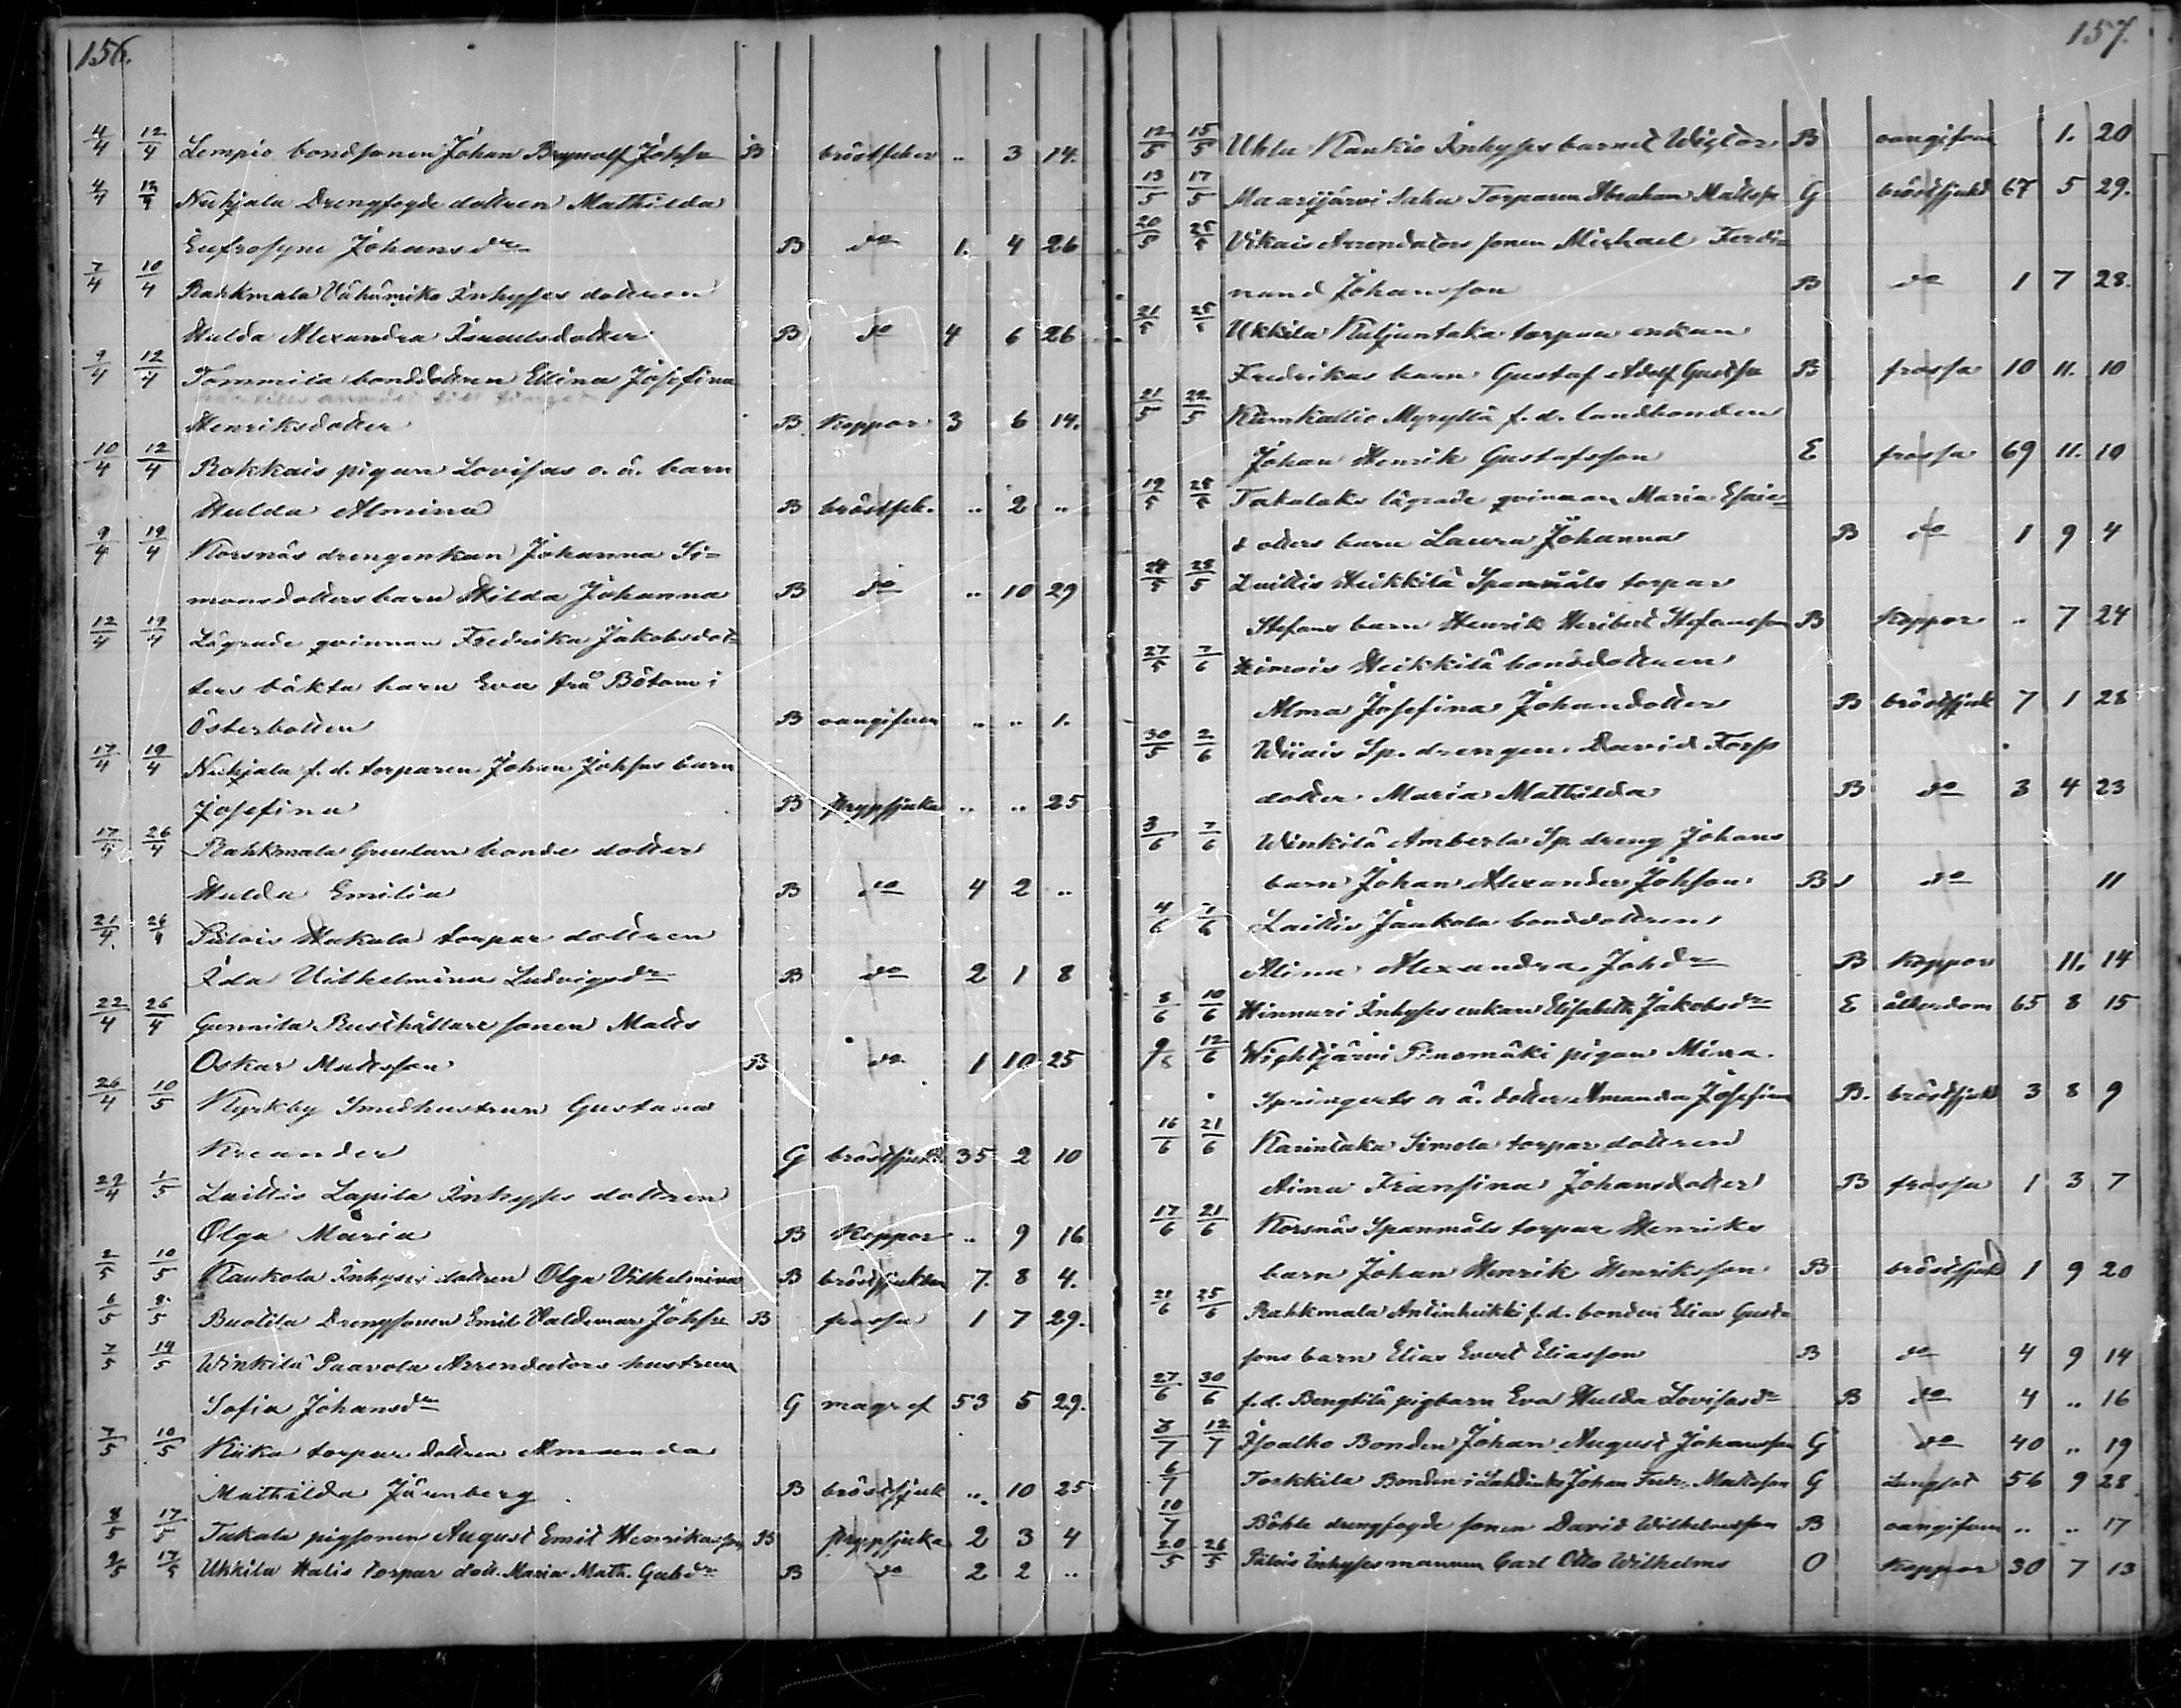 156.
4/4 12/4 Lempio bondsonen Johan Brynolf Johss B bröstfeber .. 3 14.
4/4 12/4 Nuhjala Drengfogde dottren Mathilda
Eufrosyne Johansdr B do 1. 4 26
7/4 10/4 Rahkmala Vähämiko Inhyses dottren
Hulda Alexandra Isaaksdotter B do 4 6 26
9/4 12/4 Tommila bonddottren Elina Josefina
Henriksdotter B Koppor 3 6 14.
10/4 12/4 Rokkais pigan Lovisas o. ä. barn
Hulda Almina B bröstfeb. .. 2 ..
9/4 19/4 Korsnäs drengenkan Johanna Si=
monsdotters barn Hilda Johanna B do .. 10 29
12/4 19/4 Lägrade qvinnan Fredrika Jakobsdot=
ters oäkta barn Eva frå Bötom i
Österbotten B oangifven .. .. 1.
17/4 19/4 Nuhjala f. d. torparen Johan Johsns barn
Josefina B strypsjuka .. .. 25
17/4 26/4 Rahkmala Grundar bonde dotter
Hulda Emilia B do 4 2 ..
21/4 26/4 Pulois Hakala torpar dottren
Ida Vilhelmina Ludvigsdr B do 2 1 8
22/4 26/4 Gunnila Rusthållare sonen Matts
Oskar Mattsson B do 1 10 25
26/4 10/5 Kyrkby Smedhustrun Gustava
Kreander G bröstsjukd. 35 2 10
29/4 1/5 Laittis Lapila Inhyses dottren
Olga Maria B Koppor .. 9 16
2/5 10/5 Kaukola Inhyses dottren Olga Vilhelmina B bröstsjukdom 7. 8 4.
6/5 8/5 Buolila Drengsonen Emil Valdemar Johss B frossa 1 7 29.
7/5 19/5 Winkilä Paavola Arrendators hustrun
Sofia Johansdr G magref 53 5 29.
7/5 10/5 Kiika torpar dottren Amanda
Mathilda Järnberg B bröstsjuk .. 10 25
8/5 17/5 Takala pigsonen August Emil Henriksson B strypsjuka 2 3 4
9/5 17/5 Ukkila Halis torpar dott. Maria Math. Gabdr B do 2 2 ..
157.
12/5 15/5 Uhlu Kaukio Inhyses barnet Wigtor B oangifven 1. 20
13/5 17/5 Maarijärvi Sahu Torparen Abraham Mattss G bröstsjukd 67 5 29.
20/5 25/5 Vikais Arrendators sonen Michael Ferdi=
nand Johansson B do 1 7 28.
21/5 25/5 Ukkila Kuljuntaka torpar enkan
Fredrikas barn Gustaf Adolf Gustfss B frossa 10 11. 10
21/5 22/5 Kämkallio Myryllä f. d. landbonden
Johan Henrik Gustafsson E frossa 69 11. 10
19/5 25/5 Takalaks lägrade qvinnan Maria Esaie=
dotters barn Laura Johanna B do 1 9 4
24/5 28/5 Laittis Heikkilä Spanmåls torpar
Stefans barn Henrik Heribert Stefansson B Koppor .. 7 24
27/5 7/6 Heinois Heikkilä bonddottren
Alma Josefina Johandotter B bröstsjuk 7 1 28
30/5 2/6 Wiiais Sp. drengen David Forss
dotter Maria Mathilda B do 3 4 23
3/6 7/6 Winkilä Amberla Sp. dreng Johans
barn Johan Alexander Johsson B do 11
4/6 7/6 Laittis Jaukola bonddottren
Alina Alexandra Johdr B Koppor 11. 14
8/6 10/6 Hinnuri Inhyses enkan Elisabeth Jakobsdr E ålderdom 65 8 15
9/6 12/6 Wightjärvi Pinomäki pigan Mina
Springerts o ä. dotter Amanda Josefina B. bröstsjukd 3 8 9
16/6 21/6 Karintaka Simola torpar dottren
Aina Fransina Johansdotter B frossa 1 3 7
17/6 21/6 Korsnäs Spanmåls torpar Henriks
barn Johan Henrik Henriksson B bröstsjukd 1 9 20
21/6 25/6 Rahkmala Antinheikki f. d. bonden Elias Gusta=
sons barn Elias Evert Eliasson B do 4 9 14
27/6 30/6 f. d. Bengtilä pigbarn Eva Hulda Lovisasdr B do 4 .. 16
3/7 12/7 Isoalho Bonden Johan August Johansson G do 40 .. 19
6/7 Torkkila Bonden i Lahdinko Johan Fredr. Mattsson G Lungsot 56 9 28
10/7 Böhle drengfogde sonen David Wilhelmsson B oangifven .. .. 17
20/5 26/5 Pulois Inhyses mannen Carl Otto Wilhelms O Koppor 30 7 13